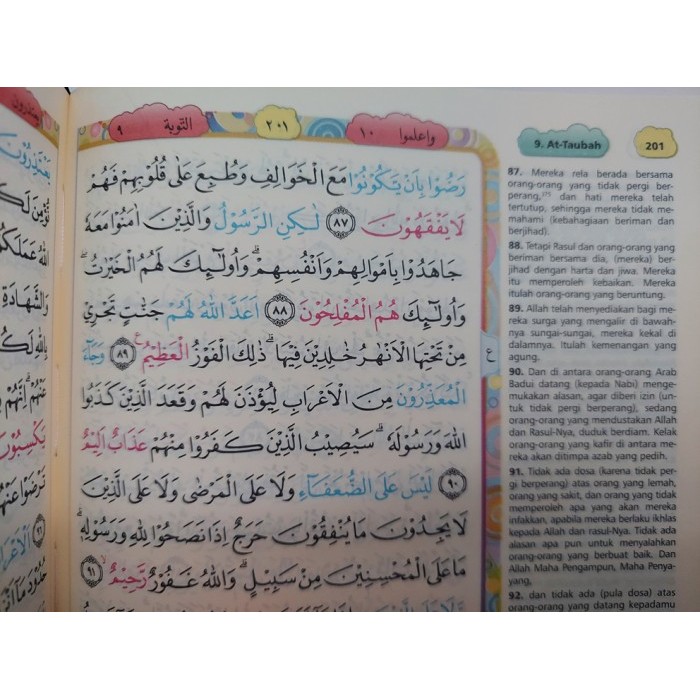 التوبة ٩
٢٠١
واعلموا ١٠
رَضُوْا بِاَنْ يَّكُوْنُوْا مَعَ الْخَوَالِفِ وَطُبِعَ عَلٰى قُلُوْبِهِمْ فَهُمْ
لَا يَفْقَهُوْنَ ٨٧ لٰكِنِ الرَّسُوْلُ وَالَّذِيْنَ اٰمَنُوْا مَعَهٗ
جَاهَدُوْا بِاَمْوَالِهِمْ وَاَنْفُسِهِمْۗ وَاُولٰۤىِٕكَ لَهُمُ الْخَيْرٰتُ
وَاُولٰۤىِٕكَ هُمُ الْمُفْلِحُوْنَ ٨٨ اَعَدَّ اللّٰهُ لَهُمْ جَنّٰتٍ تَجْرِيْ
مِنْ تَحْتِهَا الْاَنْهٰرُ خٰلِدِيْنَ فِيْهَاۗ ذٰلِكَ الْفَوْزُ الْعَظِيْمُ ٨٩ وَجَاۤءَ
الْمُعَذِّرُوْنَ مِنَ الْاَعْرَابِ لِيُؤْذَنَ لَهُمْ وَقَعَدَ الَّذِيْنَ كَذَبُوا
اللّٰهَ وَرَسُوْلَهٗۗ سَيُصِيْبُ الَّذِيْنَ كَفَرُوْا مِنْهُمْ عَذَابٌ اَلِيْمٌ
٩٠ لَيْسَ عَلَى الضُّعَفَاۤءِ وَلَا عَلَى الْمَرْضٰى وَلَا عَلَى الَّذِيْنَ
لَا يَجِدُوْنَ مَا يُنْفِقُوْنَ حَرَجٌ اِذَا نَصَحُوْا لِلّٰهِ وَرَسُوْلِهٖۗ
مَا عَلَى الْمُحْسِنِيْنَ مِنْ سَبِيْلٍۗ وَاللّٰهُ غَفُوْرٌ رَّحِيْمٌ ٩١
ع
9. At-Taubah
201
87. Mereka rela berada bersama
orang-orang yang tidak pergi ber-
perang,³⁷⁵ dan hati mereka telah
tertutup, sehingga mereka tidak me-
mahami (kebahagiaan beriman dan
berjihad)
88. Tetapi Rasul dan orang-orang yang
beriman bersama dia, (mereka) ber-
jihad dengan harta dan jiwa. Mereka
itu memperoleh kebaikan. Mereka
itulah orang-orang yang beruntung.
89. Allah telah menyediakan bagi me-
reka surga yang mengalir di bawah-
nya sungai-sungai, mereka kekal di
dalamnya. Itulah kemenangan yang
agung.
90. Dan di antara orang-orang Arab
Badui datang (kepada Nabi) menge-
mukakan alasan, agar diberi izin (un-
tuk tidak pergi berperang), sedang
orang yang mendustakan Allah
dan Rasul-Nya, duduk berdiam. Kelak
orang-orang yang kafir di antara me-
reka akan ditimpa azab yang pedih.
91. Tidak ada dosa (karena tidak per-
gi berperang) atas orang yang lemah,
orang yang sakit, dan orang yang tidak
memperoleh apa yang akan mereka
infakkan, apabila mereka berlaku ikhlas
kepada Allah dan rasul-Nya. Tidak ada
alasan apa pun untuk menyalahkan
orang-orang yang berbuat baik. Dan
Allah Maha Pengampun, Maha Penya-
yang,
92. dan tidak ada (pula dosa) atas
orang-orang yang datang kepadamu